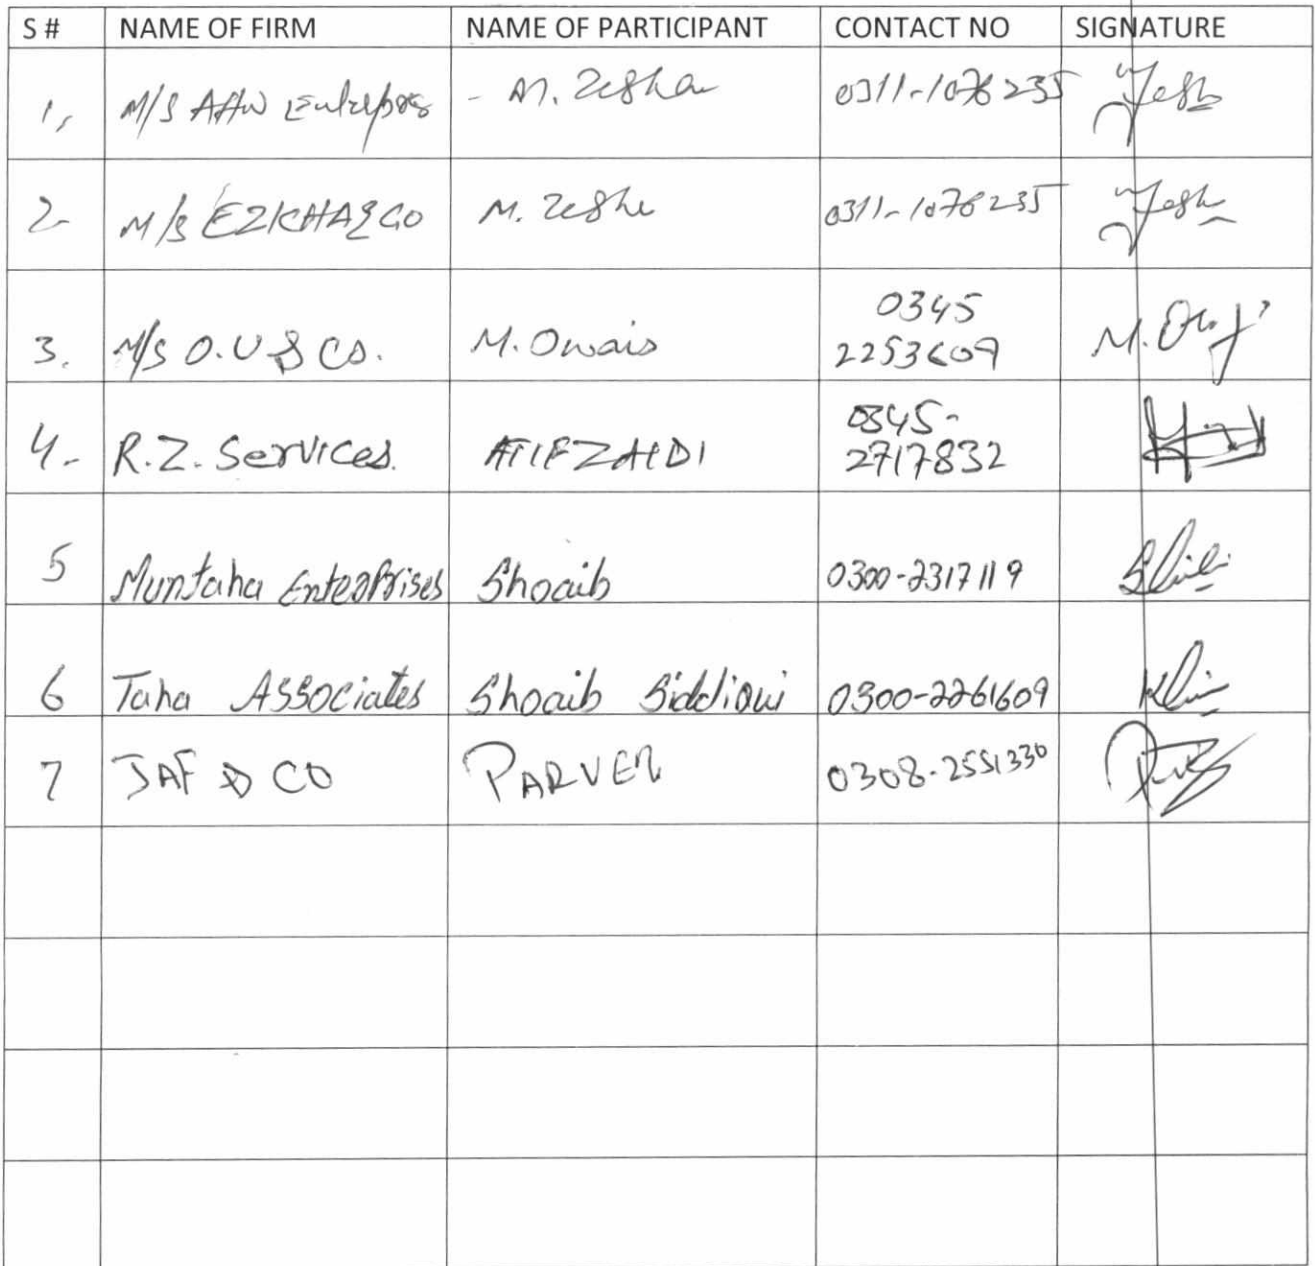 S # NAME OF FIRM NAME OF PARTICIPANT CONTACT NO SIGNATURE
1, M/S AHW - M. Zeshan 0311-1076235
2- M/S M. Zeshan 0311-1076235
3. M/S O.U & CO. M. Owais 0345
2253609
4- R.Z. Services. ATIF ZAIDI 0345-
2717832
5 Muntaha Enterprises Shoaib 0300-2317119
6 Taha Associates Shoaib Siddiqui 0300-2261609
7 JAF & CO PARVEZ 0308-2551330